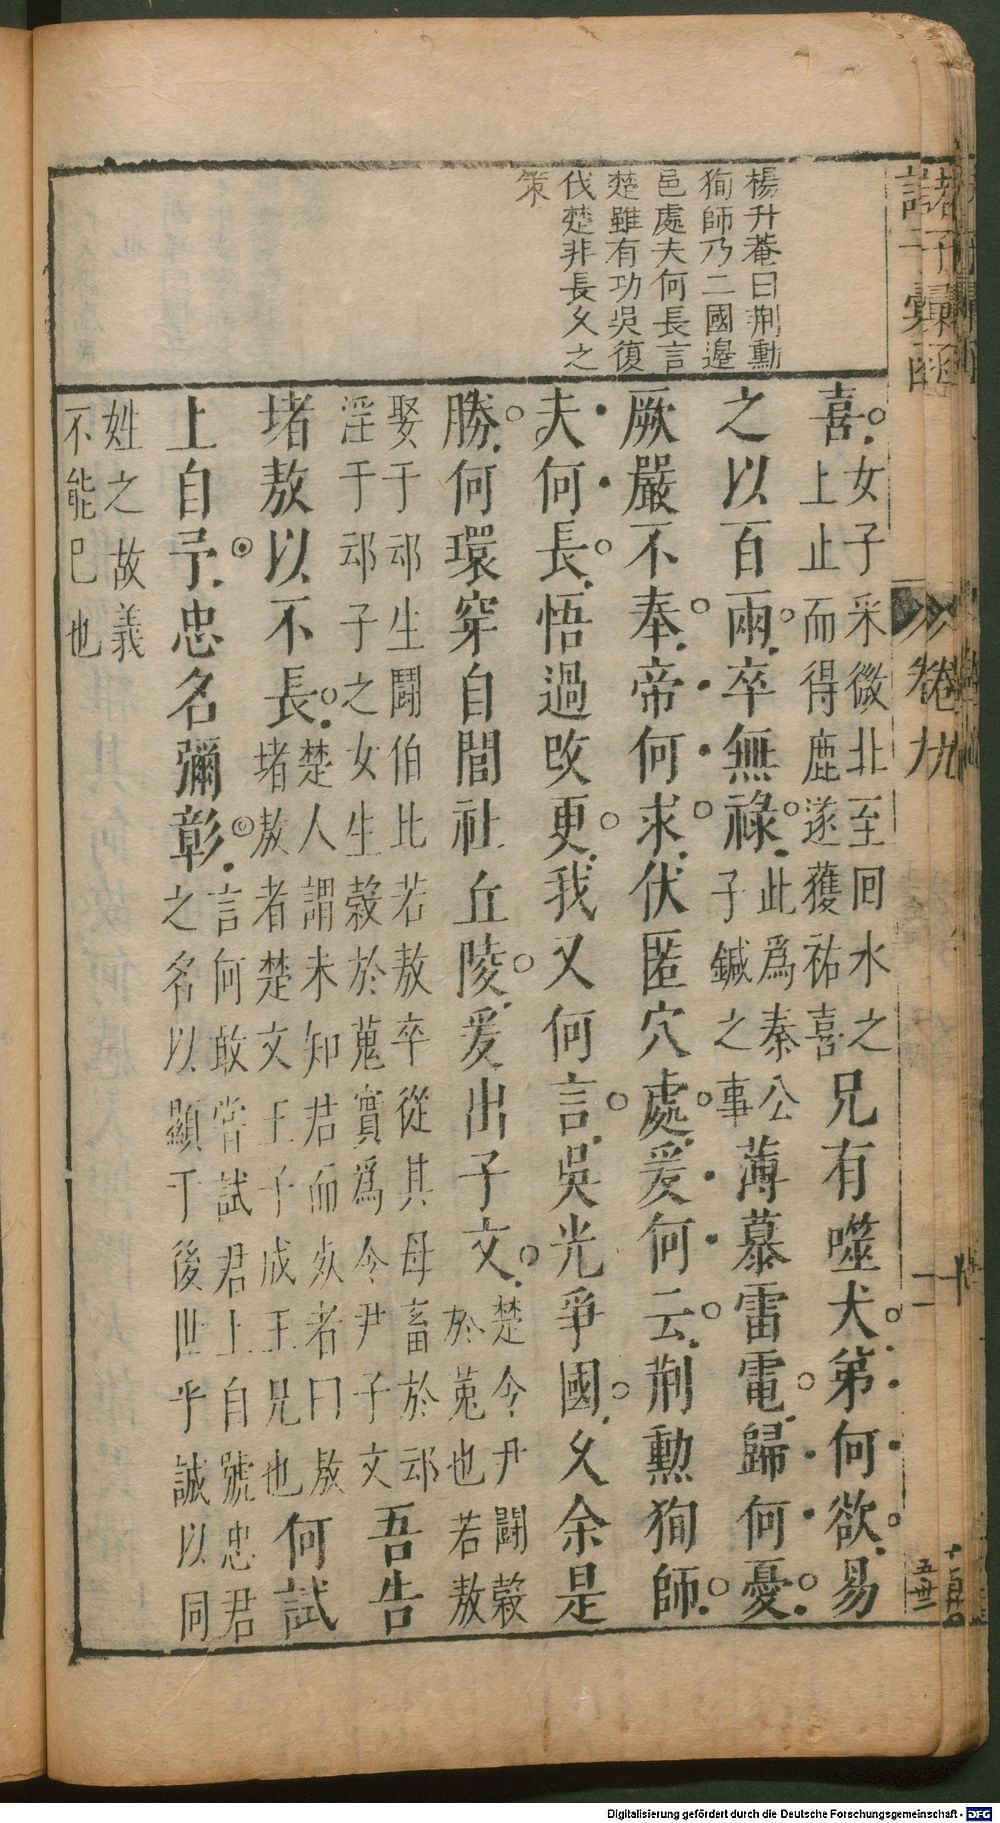 諸子彙函
卷九
楊升菴曰荆勳
狥師乃二國邊
邑處夫何長言
楚雖有功吳復
伐楚非長久之
策
喜女子采微北至回水之上止而得鹿遂獲祐喜兄有噬犬弟何欲易
之以百兩卒無祿此為秦公子鍼之事薄暮雷電歸何憂
厥嚴不奉帝何求伏匿穴處爰何云荆勳狥師
夫何長悟過改更我又何言吳光爭國久余是
勝何環穿自閭社丘陵爰出子文楚令尹鬬穀於菟也若敖
娶于䢵生鬬伯比若敖卒從其母畜於䢵淫于䢵子之女生穀於菟實為令尹子文吾告
堵敖以不長楚人謂未知君而死者曰敖堵敖者楚文王子成王兄也何試
上自予忠名彌彰言何敢嘗試君上自號忠君之名以顯于後世乎誠以同
姓之故義不能巳也
Digitalisierung gefördert durch die Deutsche Forschungsgemeinschaft - DFG